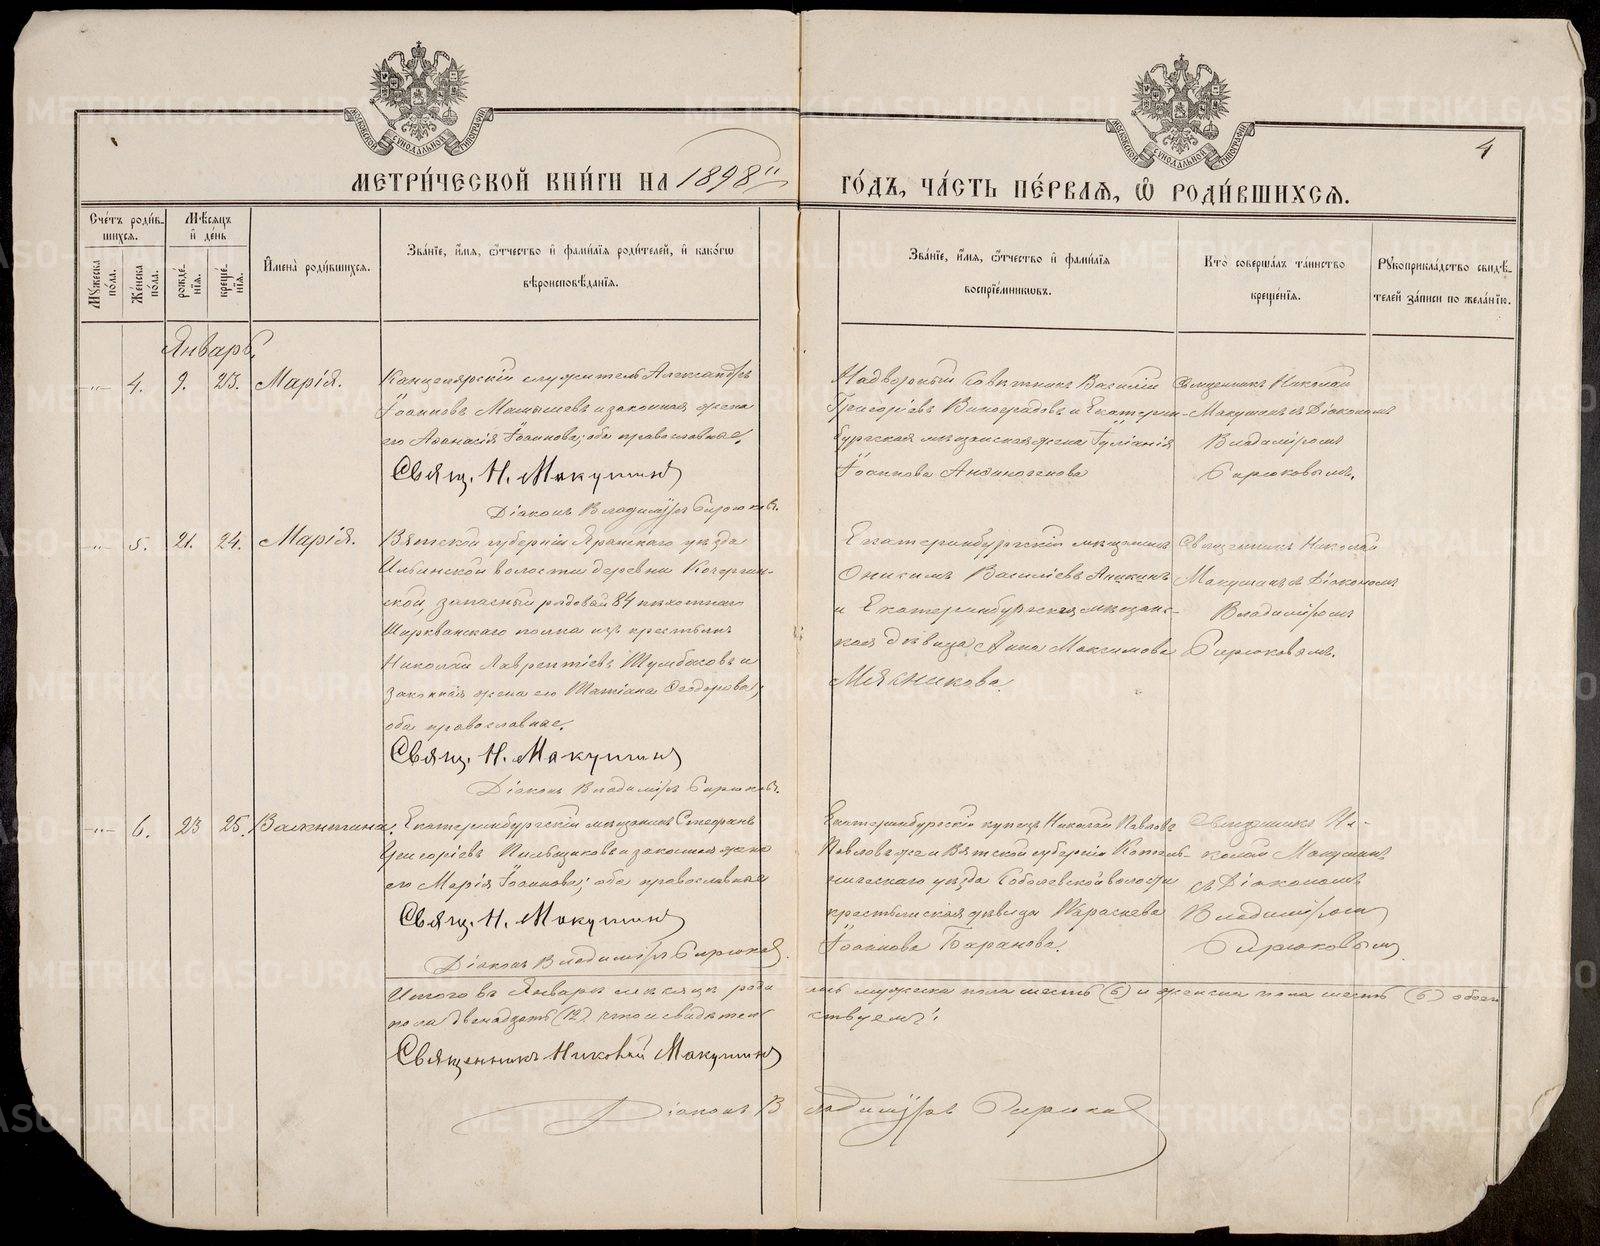 МОСКОВСКОЙ СѴНОДАЛЬНОЙ ТИПОГРАФІИ
МОСКОВСКОЙ СѴНОДАЛЬНОЙ ТИПОГРАФІИ
4
МЕТРИ́ЧЕСКОЙ КНИ́ГИ НА 1898й ГО́ДЪ, ЧА́СТЬ ПЕ́РВАѦ, Ѽ РОДИ́ВШИХСѦ.
Сче́тъ роди́в-
шихсѧ.
Мѣ́сѧцъ
и҆ де́нь
Мꙋ́жеска по́ла.
Же́нска по́ла.
рожде́нїѧ.
креще́нїѧ.
И҆мена̀ роди́вшихсѧ.
Зва́нїе, и҆́мѧ, ѻ҆́тчество и҆ фами́лїѧ роди́телей, и҆ како́гѡ
вѣроисповѣ́данїѧ.
Зва́нїе, и҆́мѧ, ѻ҆́тчество и҆ фами́лїѧ
воспрїе́мникѡвъ.
Кто̀ соверша́лъ та́инство
креще́нїѧ.
Рꙋкоприкла́дство свидѣ́-
телей за́писи по жела́нїю.
Январь.
-"- 4. 9. 23. Марія.
Канцелярскій служитель Александръ
Іоанновъ Мамышевъ и законная жена
его Аѳанасія Іоаннова; оба православные.
Свящ. Н. Макушинъ
Діаконъ Владиміръ Бирюковъ.
Надворный Совѣтникъ Василій
Григоріевъ Виноградовъ и Екатерин-
бургская мѣщанская жена Іуліанія
Іоаннова Анѳиногенова
Священникъ Николай
Макушинъ съ Діакономъ
Владиміромъ
Бирюковымъ.
-"- 5. 21. 24. Марія.
Вятской губерніи Яранскаго уѣзда
Ильинской волости деревни Кочергин-
ской, запасный рядовой 84 пѣхотнаго
Ширванскаго полка изъ крестьянъ
Николай Лаврентіевъ Тумбасовъ и
законная жена его Татіана Ѳеодорова;
оба православные.
Свящ. Н. Макушинъ
Діаконъ Владиміръ Бирюковъ.
Екатеринбургскій мѣщанинъ
Оникимъ Василіевъ Аникинъ
и Екатеринбургская мѣщанс-
кая дѣвица Анна Максимова
Мясникова.
Священникъ Николай
Макушинъ съ Діакономъ
Владиміромъ
Бирюковымъ.
-"- 6. 23 25. Валентина.
Екатеринбургскій мѣщанинъ Стефанъ
Григоріевъ Пильщиковъ и законная жена
его Марія Іоаннова; оба православные
Свящ. Н. Макушинъ
Діаконъ Владиміръ Бирюковъ.
Екатеринбургскій купецъ Николай Павловъ
Павловъ же и Вятской губерніи Котель-
ническаго уѣзда Соболевской волости
крестьянская дѣвица Параскева
Іоаннова Баранова.
Священникъ Ни-
колай Макушинъ
съ Діакономъ
Владиміромъ
Бирюковымъ
Итого въ Январѣ мѣсяцѣ роди лось мужеска пола шесть (6) и женска пола шесть (6) обоего
пола двенадцать (12) что и свидѣтель ствуемъ:
Священникъ Николай Макушинъ
Діаконъ Владиміръ Бирюковъ
METRIKI.GASO-URAL.RU